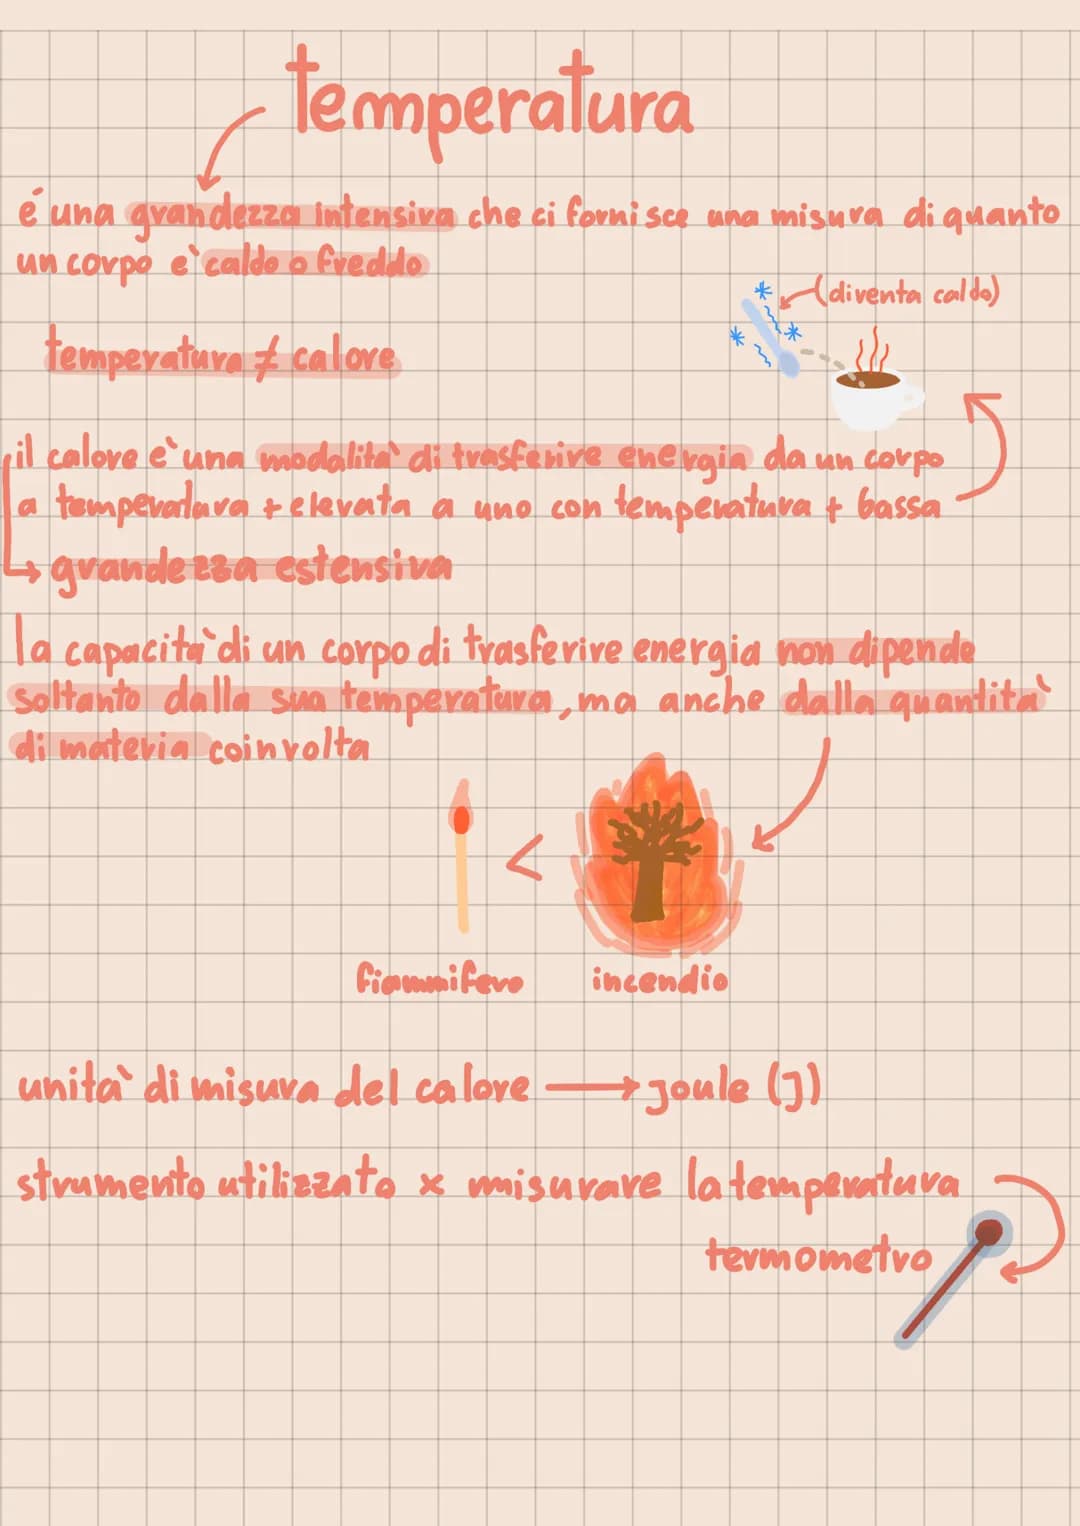 temperatura
é una grandezza intensiva che ci fornisce una misura di quanto
un corpo è caldo o freddo
(diventa caldo)
temperatura ≠ calore
il calore è una modalità di trasferire energia da un corpo
a temperatura + elevata a uno con temperatura + bassa
grandezza estensiva
la capacità di un corpo di trasferire energia non dipende
soltanto dalla sua temperatura, ma anche dalla quantità
di materia coinvolta
<
fiammifero incendio
unità di misura del calore → joule (J)
strumento utilizzato x misurare la temperatura
termometro